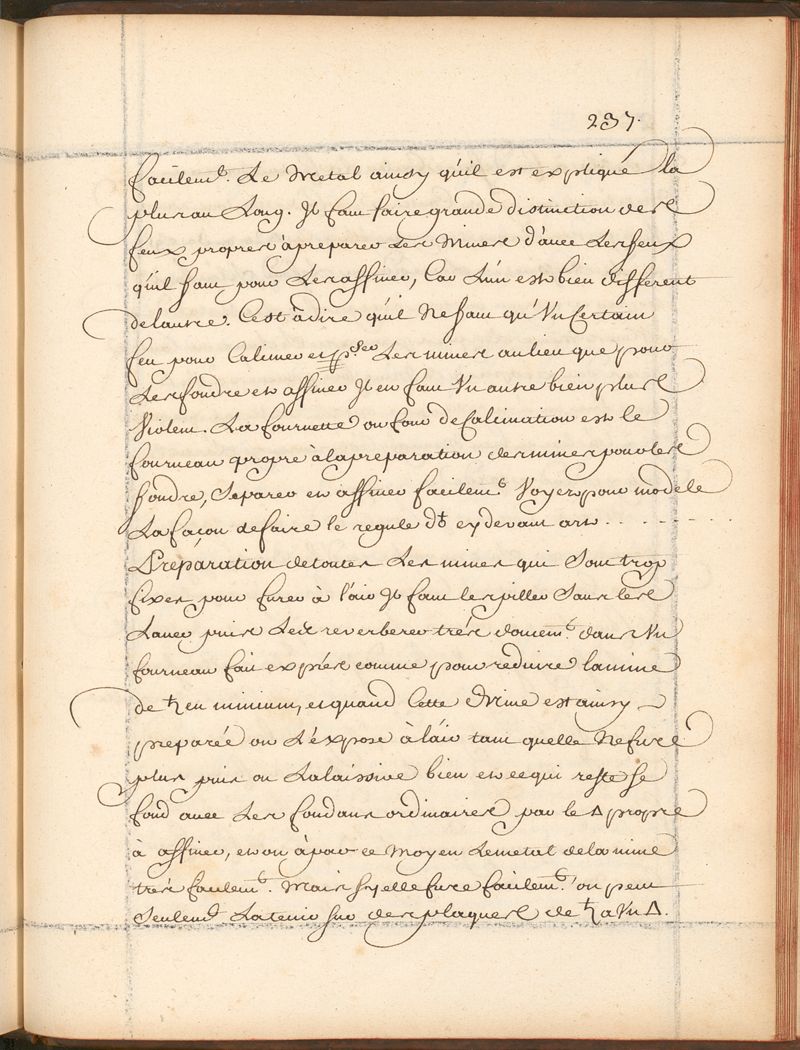 237.
facilem.t Le Metal ainsy qu'il est expliqué la
plus au Long. Jl faut faire grande distinction des
feux propres à preparer Les Mines d'avec Les feux
qu'il faut pour Les affiner, Car L'un est bien different
de lautre. C'est à dire qu'il Ne faut qu'Un Certain
feu pour Calciner et Les mines au lieu que pour
Les fondre et affiner Jl en faut Un autre bien plus
Violent. La fournette ou four de Calcination est le
fourneau propre à la preparation des mines pour les
fondre, Separer et affiner facilem.t Voyez pour modele
La façon de faire le regule d♄ cy devant art. . . . . . . . .
Préparation de toutes Les mines qui Sont trop
fixes pour fuser à l'air Jl faut les piller Sans les
Laver puis Les reverberer très doucem.t dans Un
fourneau fait exprés comme pour reduire la mine
de ♄ en minium, et quand Cette Mine est ainsy
preparée on L'éxpose à l'air tant quelle Ne fuse
plus puis on La laissive bien et ce qui reste se
fond avec Les fondans ordinaires par le △ propre
à affiner, et on à par ce Moyen Le metal de la mine
très facilem.t. Mais sy elle fuse facilem.t on peut
Seulem.t La tenir sur des plaques de ♄ a Un △.